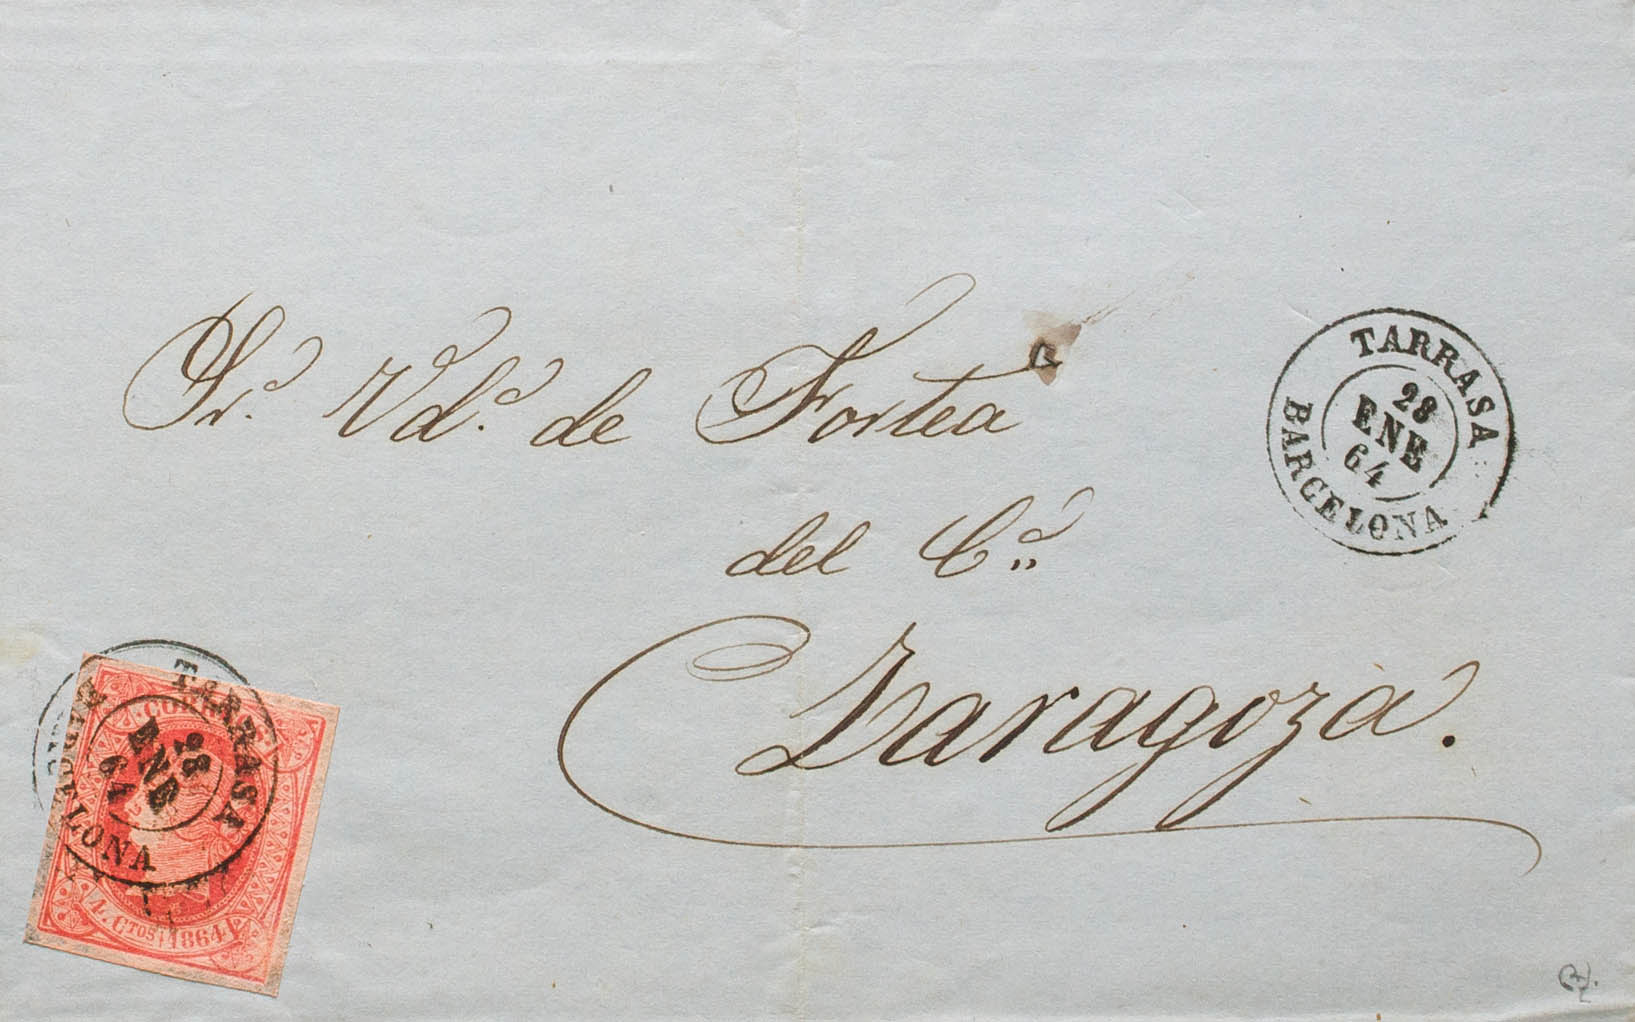 Sr. Vda. de Fortea
del Co.
Zaragoza.
TARRASA
28
ENE
64
BARCELONA
TARRASA
28
ENE
64
BARCELONA
CORREOS
4. CTOS 1864